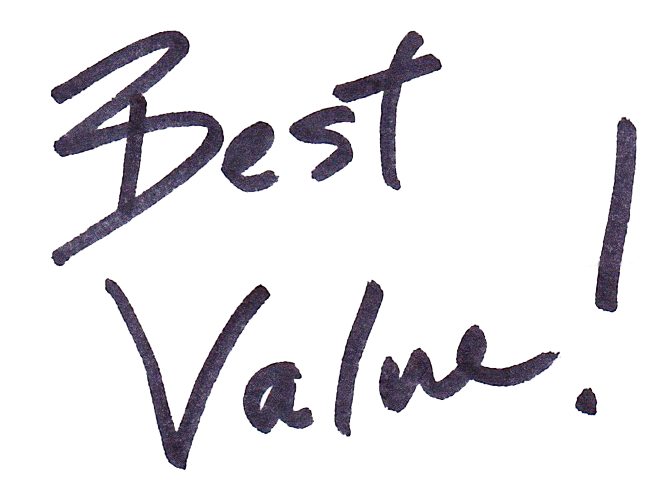 Best
Value!